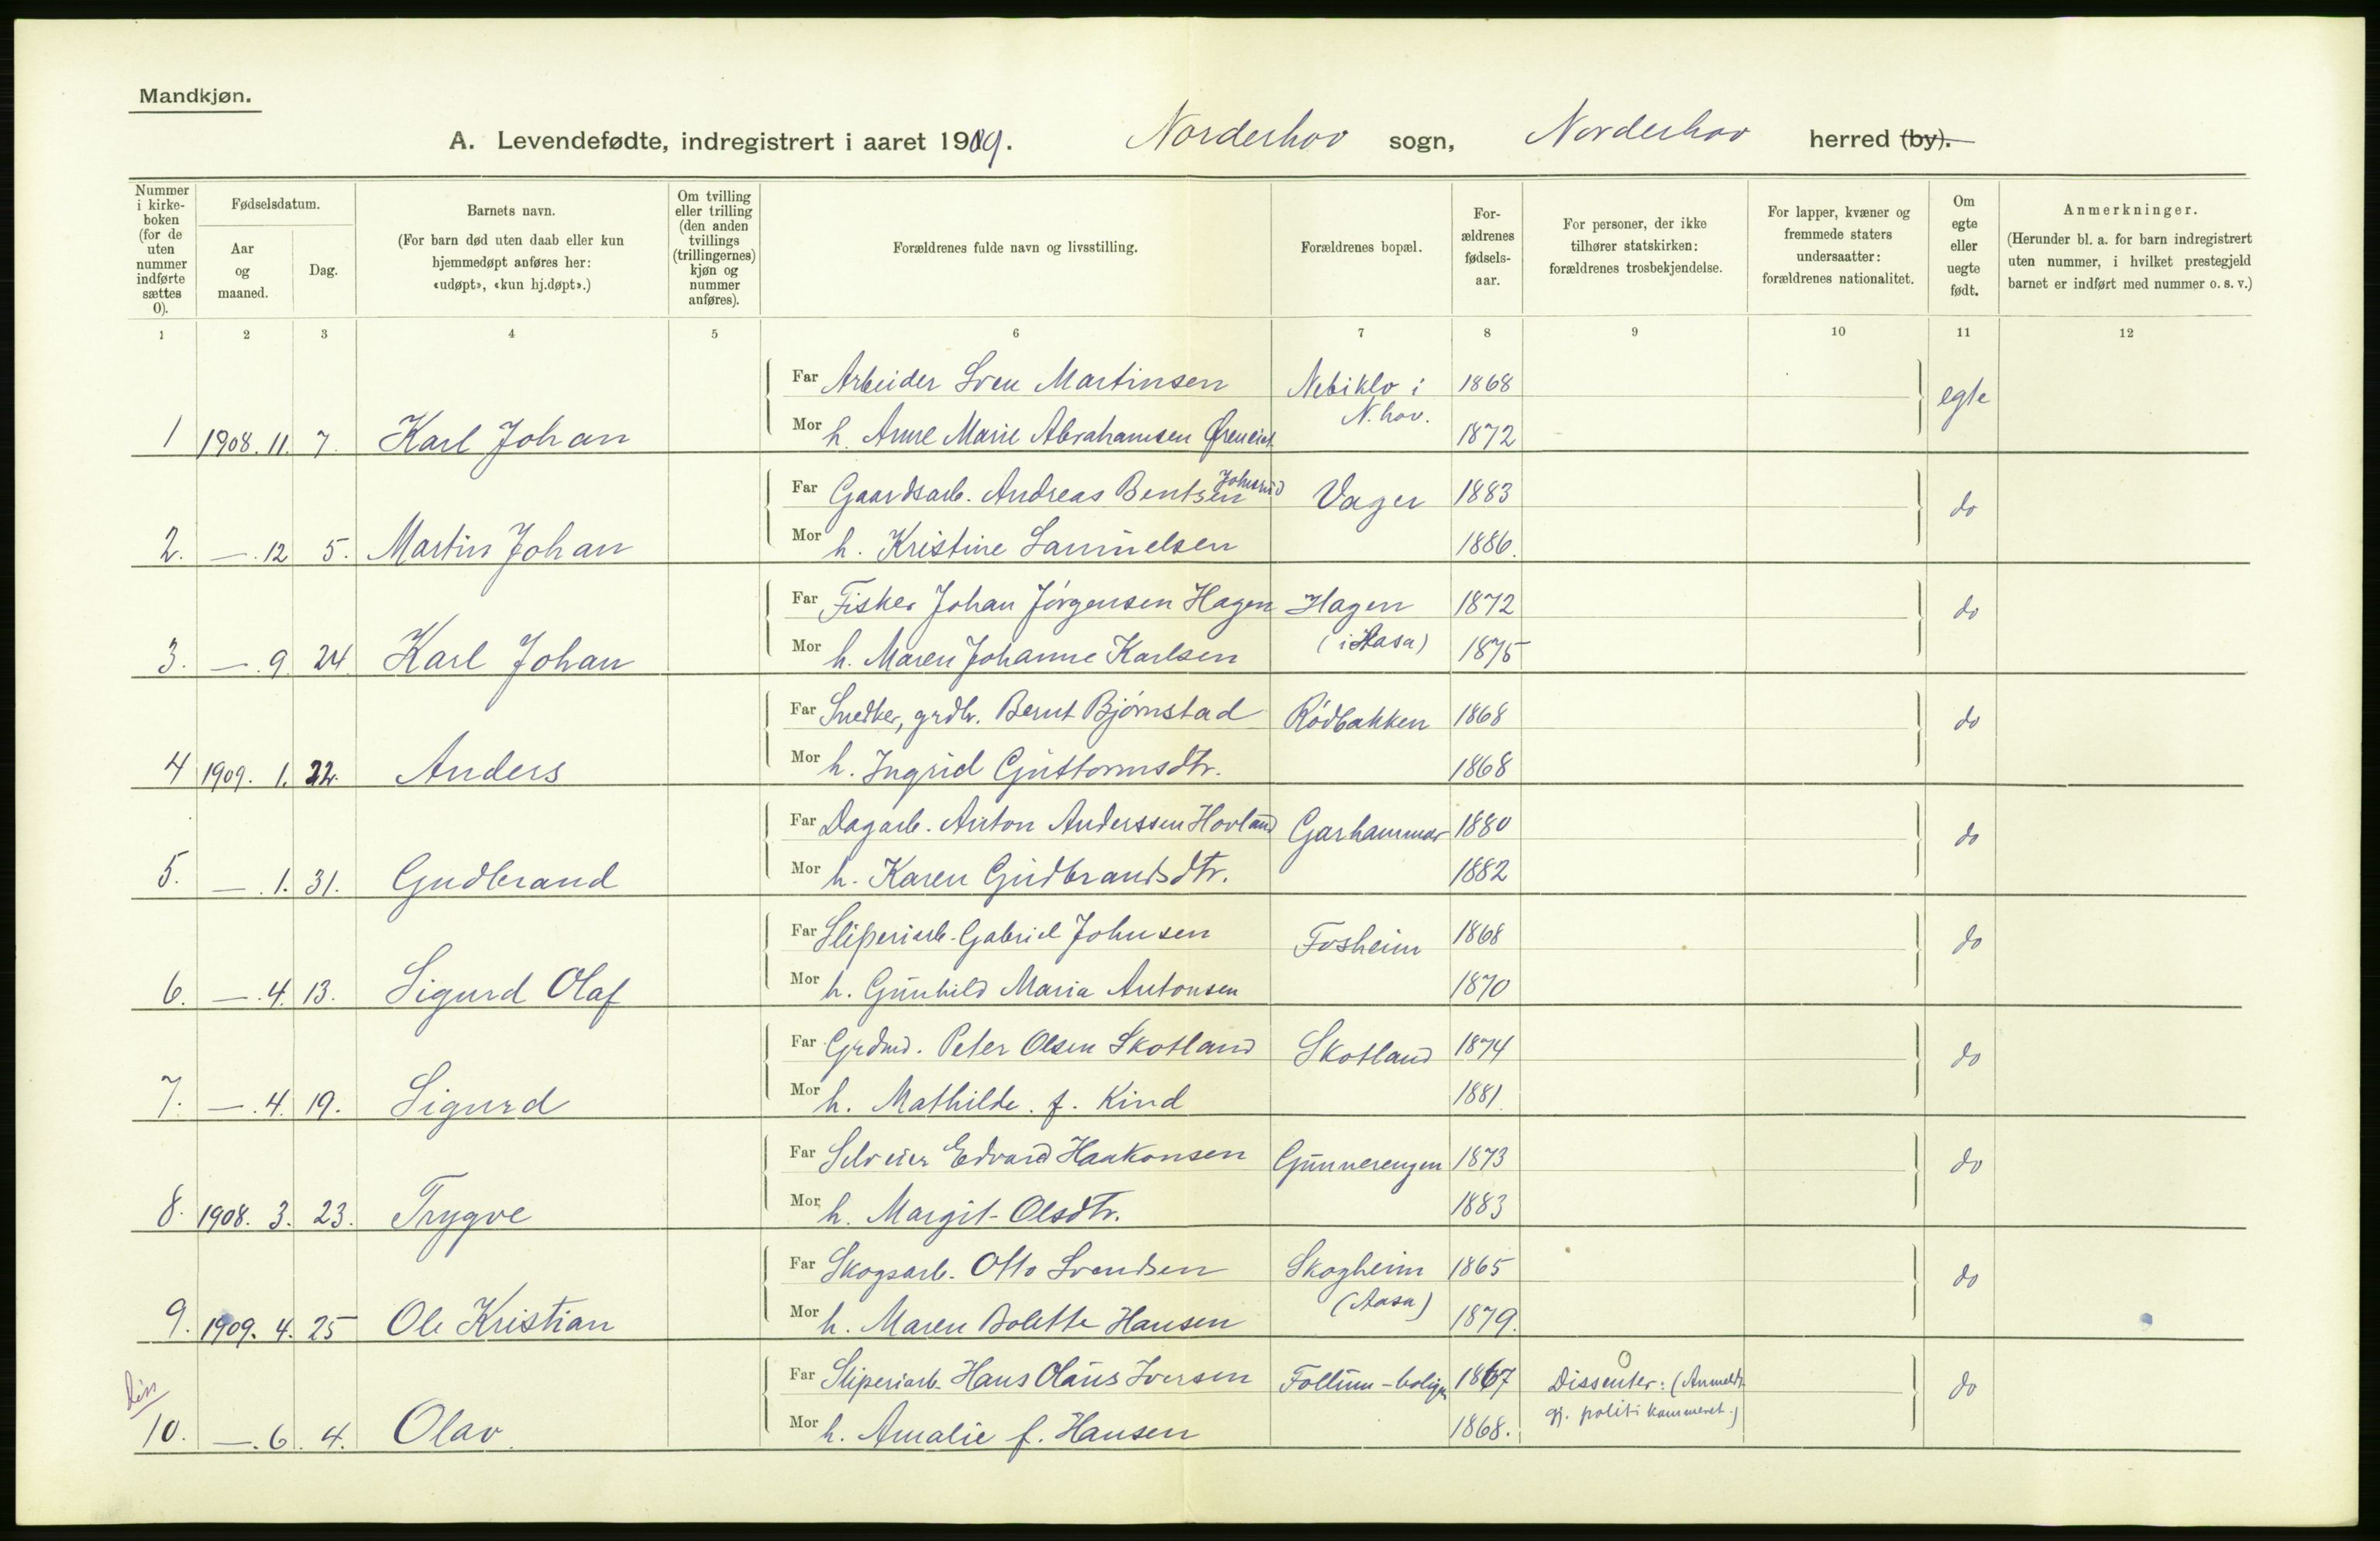 Mandkjøn.
A. Levendefødte, indregistrert i aaret 1909. Norderhov sogn, Norderhov herred (by).
Nummer i kirke-boken (for de uten nummer indførte sættes 0).
Fødselsdatum.
Aar og maaned.
Dag.
Barnets navn.
(For barn død uten daab eller kun hjemmedøpt anføres her: «udøpt», «kun hj.døpt».)
Om tvilling eller trilling (den anden tvillings (trillingernes) kjøn og nummer anføres).
Forældrenes fulde navn og livsstilling.
Forældrenes bopæl.
For-ældrenes fødsels-aar.
For personer, der ikke tilhører statskirken: forældrenes trosbekjendelse.
For lapper, kvæner og fremmede staters undersaatter: forældrenes nationalitet.
Om egte eller uegte født.
Anmerkninger.
(Herunder bl. a. for barn indregistrert uten nummer, i hvilket prestegjeld barnet er indført med nummer o. s. v.)
1 2 3 4 5 6 7 8 9 10 11 12
Far Arbeider Sven Martinsen Nebiklo i 1868 egte
N.hov.
1 1908. 11. 7. Karl Johan Mor h. Anne Marie Abrahamsen 1872
Far Gaardsarb. Andreas Bentsen Johnsrud Vager 1883 do
2. —. 12 5. Martin Johan Mor h. Kristine Samuelsen 1886.
Far Fisker Johan Jörgensen Hagen Hagen 1872 do
3. —. 9 24 Karl Johan Mor h. Maren Johanne Karlsen (i Aasa) 1875
Far Snedker, grdbr. Bernt Bjömstad Rödbakken 1868 do
4 1909. 1. 22. Anders Mor h. Ingrid Guttormsdtr. 1868
Far Dagarb. Anton Anderssen Hovland Garhammar 1880 do
5. —. 1. 31. Gudbrand Mor h. Karen Gudbrandsdtr. 1882
Far Sliperiarb. Gabriel Johnsen Fosheim 1868 do
6. —. 4. 13. Sigurd Olaf Mor h. Gunhild Maria Antonsen 1870
Far Grdmd. Peter Olsen Skotland Skotland 1874 do
7. —. 4. 19. Sigurd Mor h. Mathilde. f. Kind 1881.
Far Selveier Edvard Haakonsen Gunnerengen 1873 do
8. 1908. 3. 23. Trygve Mor h. Margit Olsdtr. 1883
Far Skogsarb. Otto Svendsen Skogheim 1865 do
9. 1909. 4. 25 Ole Kristian Mor h. Maren Bolette Hansen (Aasa) 1879.
Far Sliperiarb. Hans Olaus Iversen Follum-boligen 1867 Dissenter: (Anmeldt do
gj. politikammeret.)
Diss
10. —. 6. 4. Olav. Mor h. Amalie f. Hansen 1868.